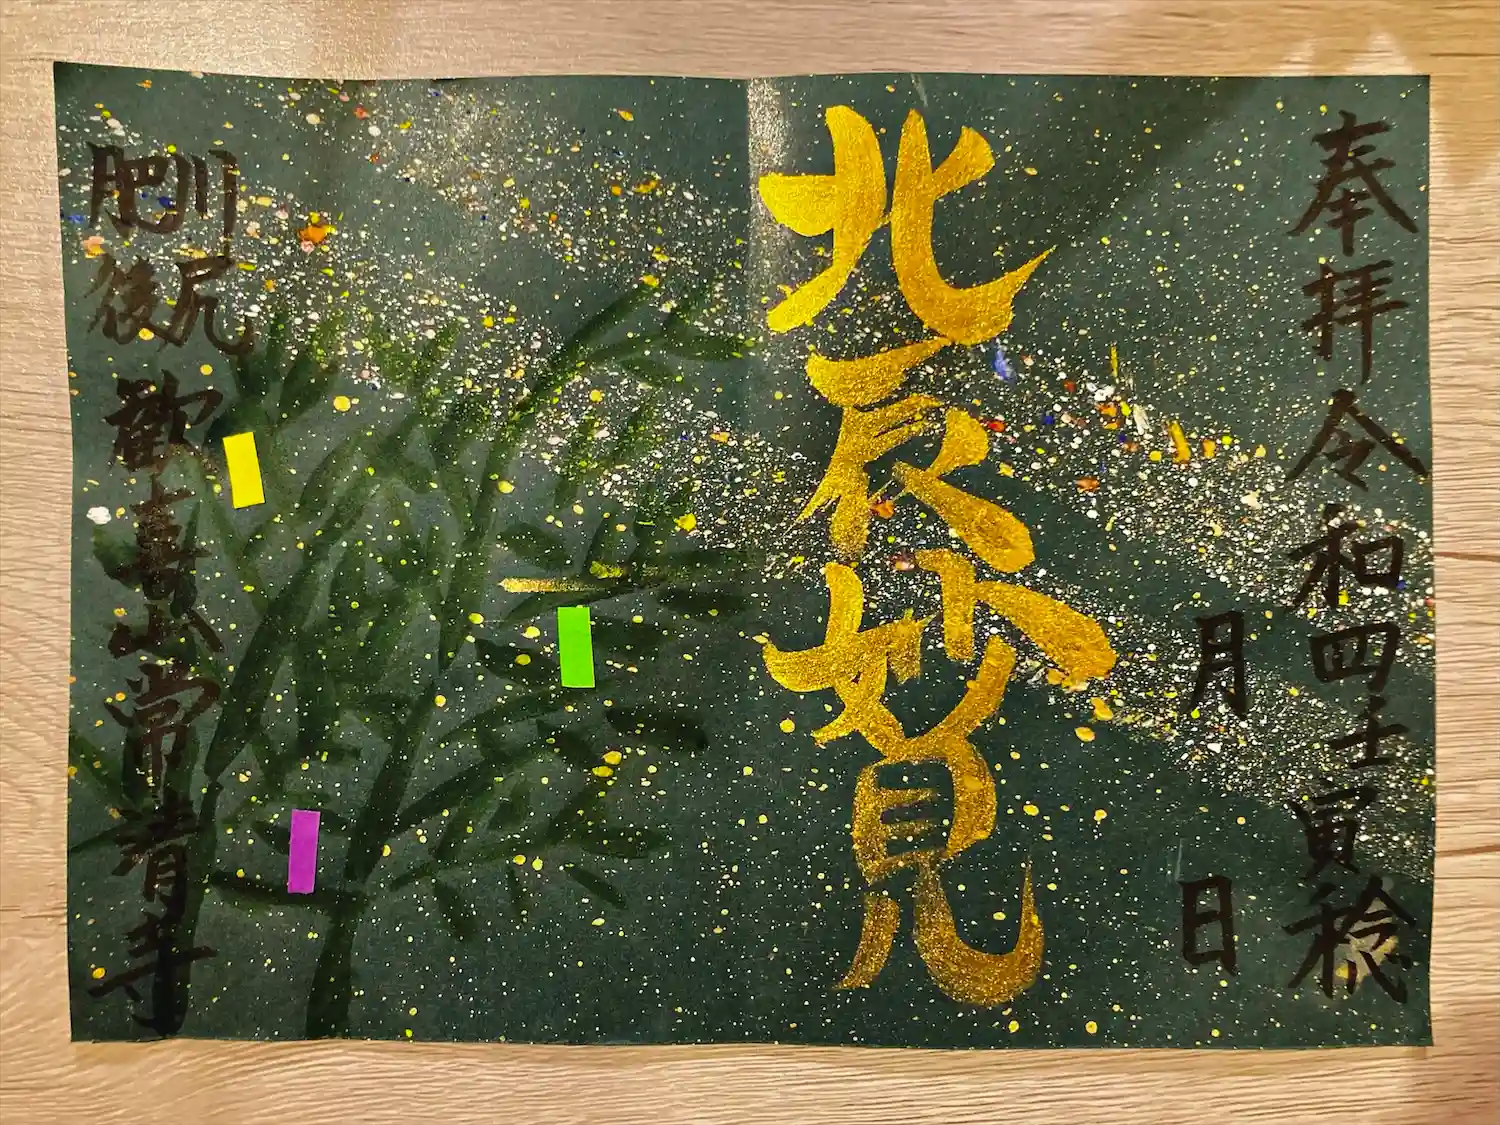 奉拝 令和四壬寅稔
月 日
北辰妙見
肥後 川尻
歓喜山常清寺